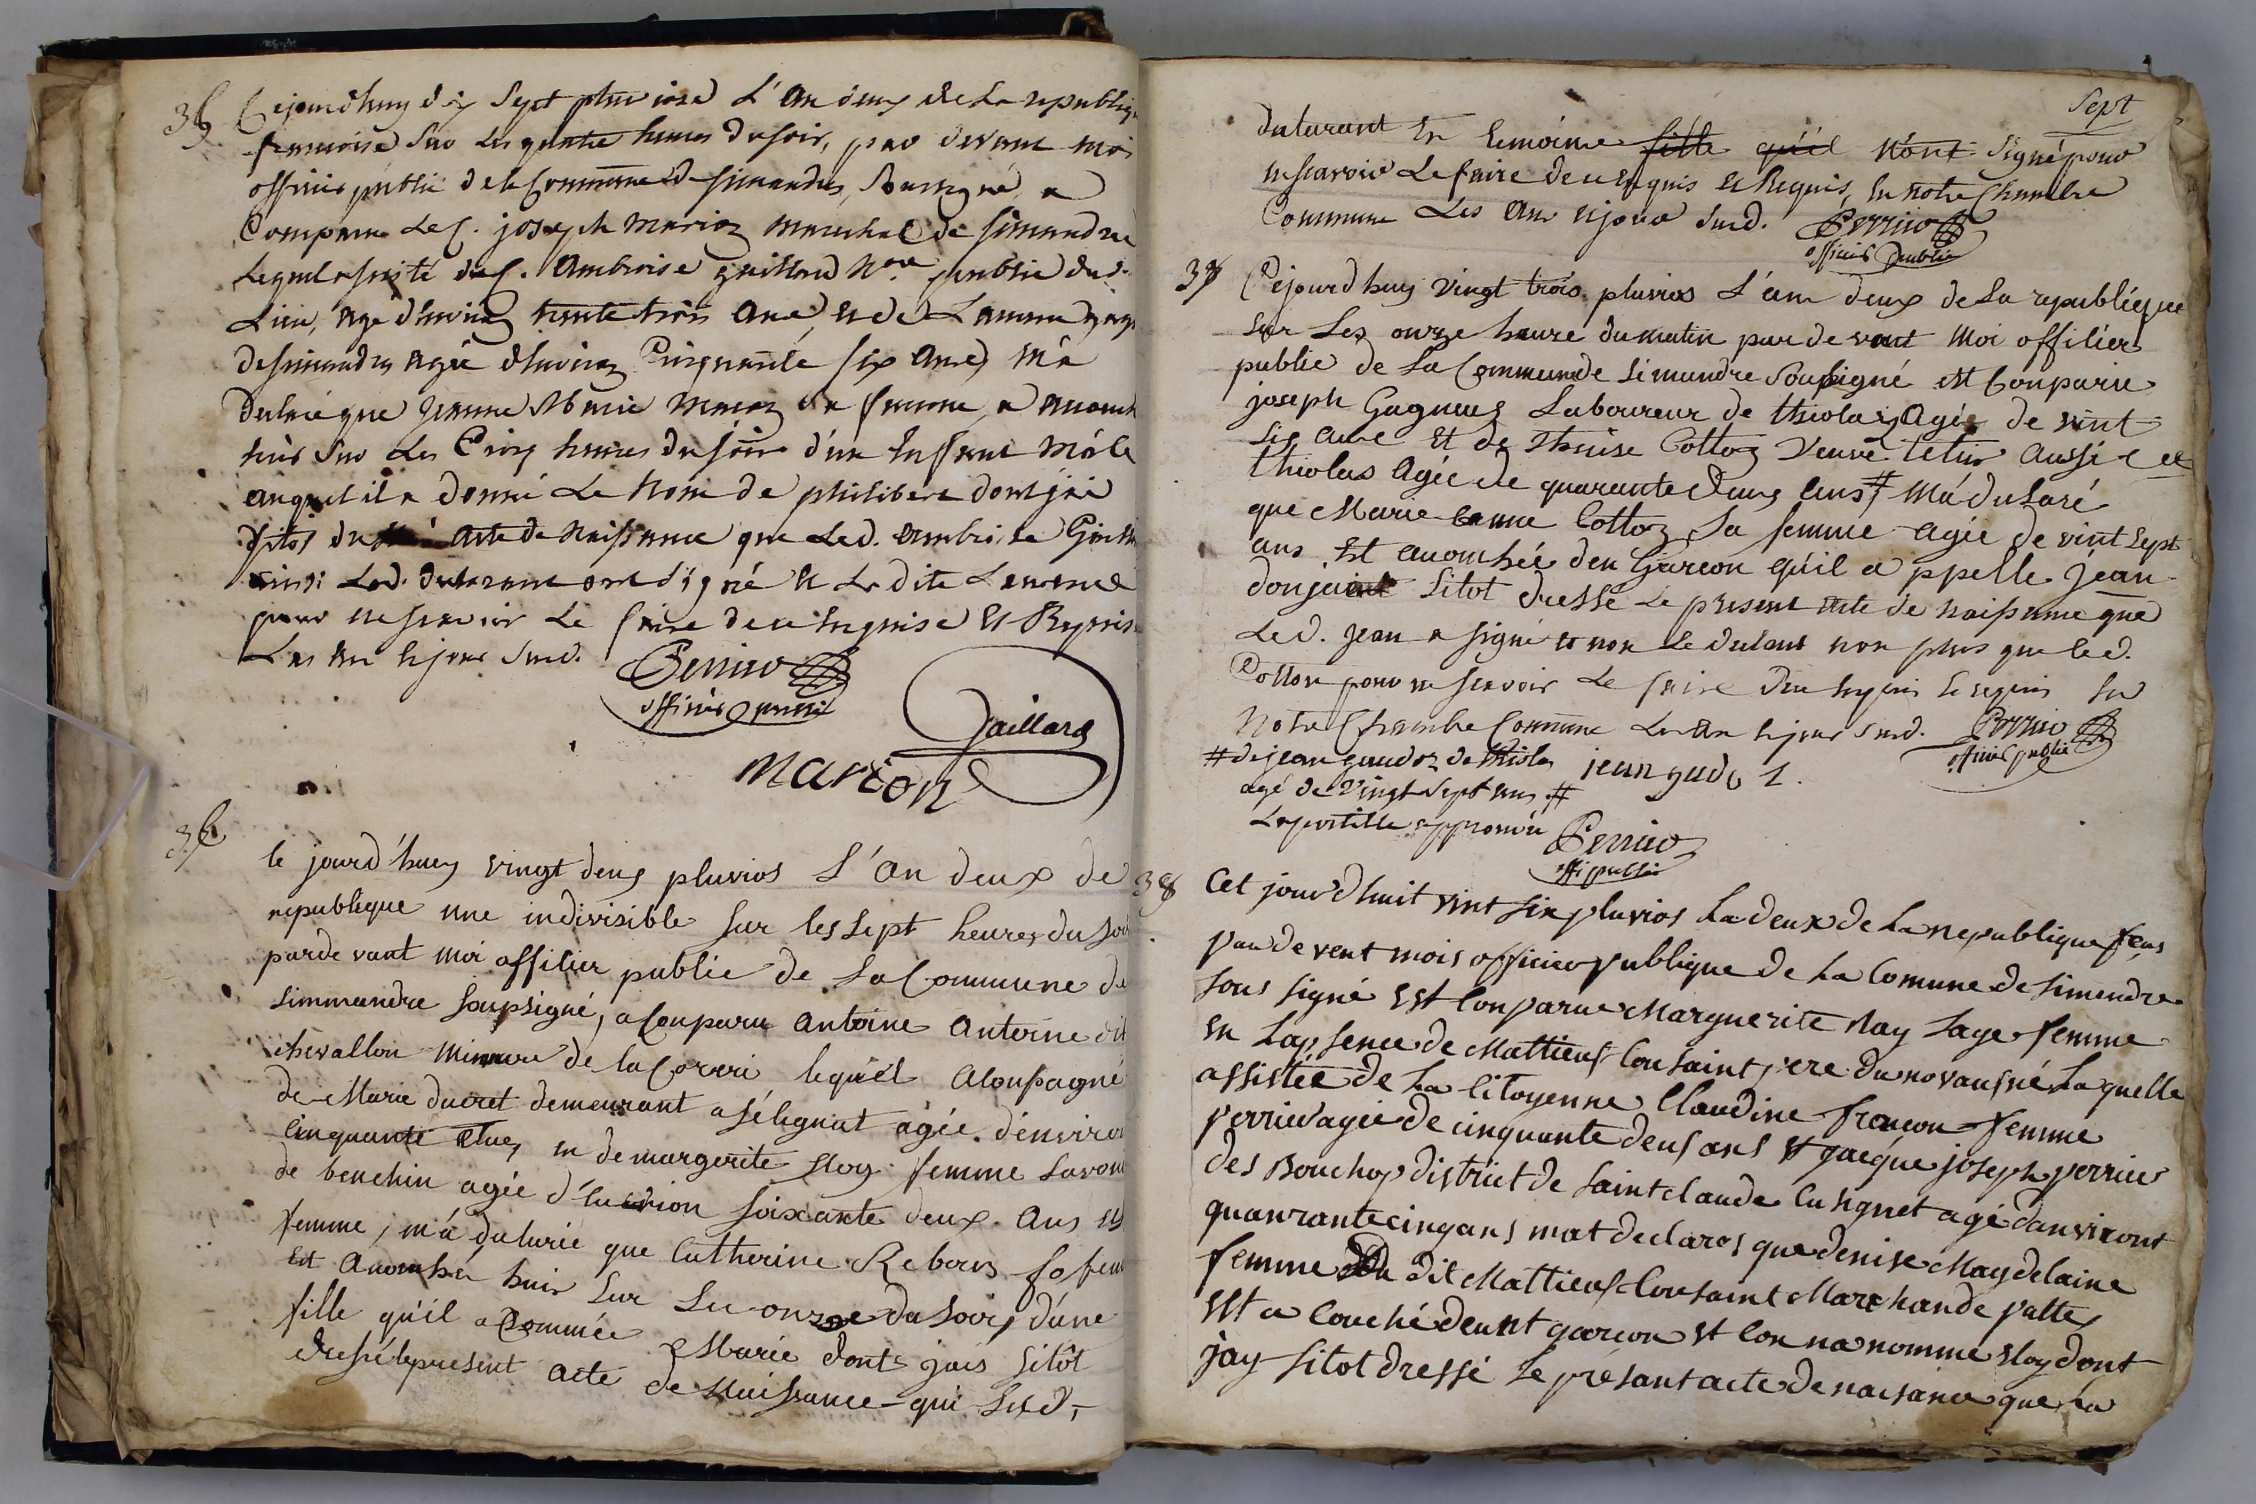 35 Cejourdhuy dix Sept pluviose L'An deux de La republiq
francoise Sur Les quatre heures du soir, par devant moi
officier public de la Commune de simandre, Soussigné, a
Comparu Le C. joseph marion marechal de simandre
Lequel assisté du C. Ambroise gaillard N.re public dud.
Lieu, agé d'environ trente trois ans, et de
de simandre agée d'environ Cinquante six ans, m'a
declaré que Jeanne Marie sa femme, a accouch
hier Sur Les Cinq heures du soir d'un Enfant Mâle
auquel il a donné Le Nom de philibert dont j'ai
sitot dressé acte de Naissance que Led. Ambroise
ainsi Led. declarant ont signé et La dite
pour ne scavoir Le faire de ce Enquise et Requise
Les An et jour Susd. Perrier
officier public
Gaillard
Marion
36
le jourd'huy vingt deux pluvios L'An deux de
republique une indivisible Sur les sept heures du soir
pardevant moi officier public de La Commune de
simmandre soupsigné, a Conparu Antoine Antoine dit
chevallon de la Correri lequel aConpagné
de Marie ducret demeurant a sélignat agée d'environ
Cinquante et de margerite Noy femme Savon
de benchin agée d'environ soixante deux Ans
femme, m'a duclurée que Catherine Rebours sa fem
Est Accouchée hier Sur Les onze du Soir, d'une
fille qu'il a nommée Marie dont jais sitôt
dressé le present Acte de Naissance que Led,
Sept
declarant En temoins fille qu'il N'ont Signé pour
ne scavoir Le faire de ce Enquis et Requis, En notre Chambre
Commune Les An et jour Susd. Perrier
officier public
37 Cejourd huy Vingt trois pluvios L'an deux de La republique
Sur Les onze heure du matin par devant Moi officier
public de La Commune de Simandre Soussigné est Conparu
joseph Gagneux Laboureur de thiolas Agée de vint
six ans et de Thérèse Cottoz Veuve aussi de
thiolas Agée de quarante Deux Ans # M'a duclaré
que Marie anne Cottoz Sa femme agée de vint sept
ans Est accouchée d'en Garcon qu'il a appelle Jean
donjai Sitot dressé Le present Acte de Naissance que
Led. Jean a signé et non Le declarant non plus que Led.
Cottoz pour ne scavoir Le faire d'en Enquis et requis En
Notre Chambre Commune Les An et jour Susd. Perrier
officier public
# de jean gaudoz de thiolas jean gudo 1.
agé de Vingt Sept ans #
L'apostille approuvée Perrier
offi public
38 Cet jour d'huit vint six pluvios La deux de La republique
par de vent mois officier publique de La Comune de simendre
sous signé est Conparue Marguerite Nay sage femme
en Lapsence de Mattieus Cousaint pere du novausné Laquelle
assistée de La Citoyenne Claudine francon femme
perrier agée de cinquante deus ans et jacque joseph perrier
des Bouchos district de saint claude agé danviront
quaurante cinq ans mat declaros que denise Magdelaine
femme du dit Mattieus Cousaint Marchande patte
est a Couché deunt garcon et Lon na nomme Noy dont
jay sitot dressé Le présant acte de naisance que La